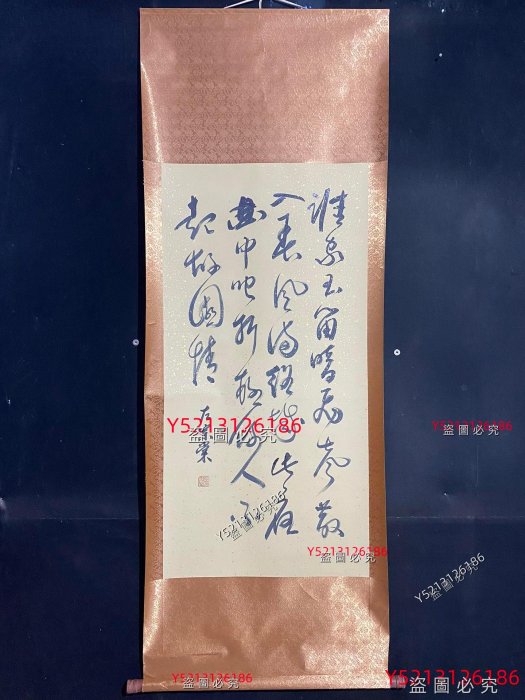 誰家玉笛暗飛聲散
入春風滿洛城此夜
曲中聞折柳何人不
起故園情
左宗棠
Y5213126186
盜圖必究
盜圖必究
Y5213126186
盜圖必究
Y5213126186
盜圖必究
Y5213126186
盜圖必究
Y5213126186
盜圖必究
Y5213126186
盜圖必究